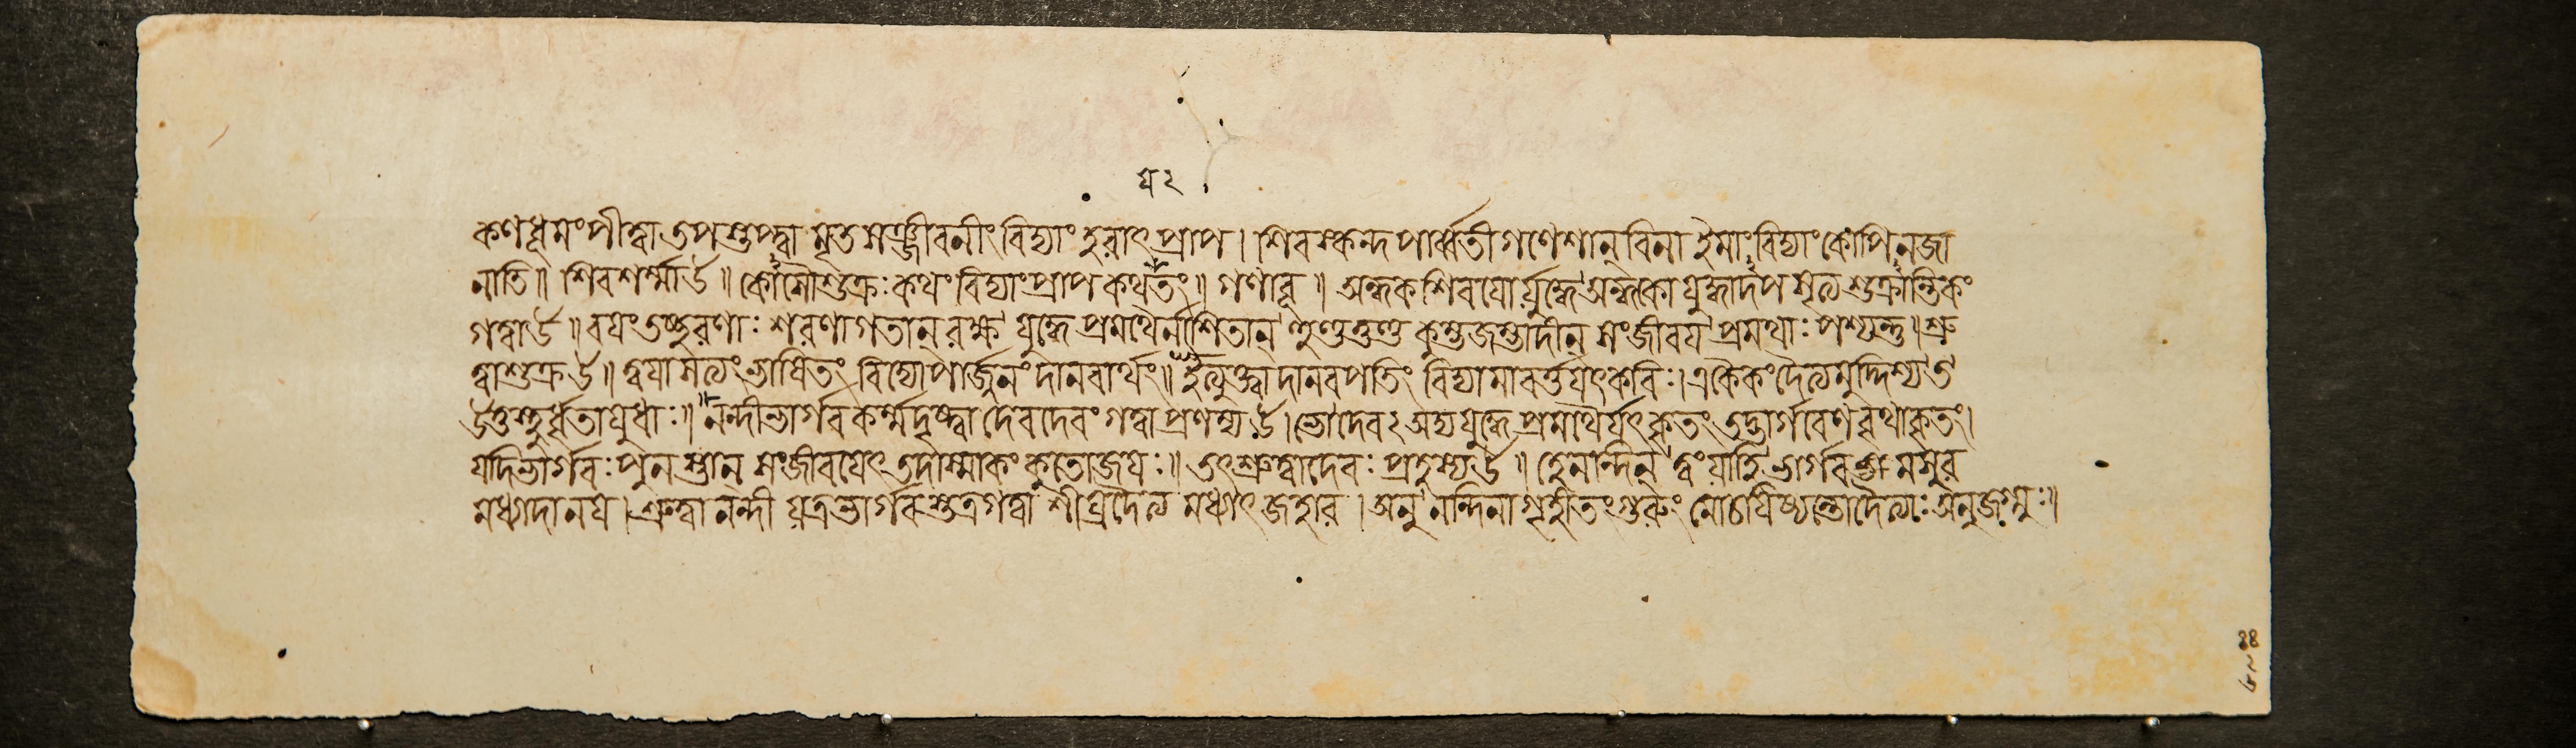 যে২
কণধূমং পীত্বা তপস্তপ্ত্বা মৃতসঞ্জীবনীং বিদ্যাং হরাৎ প্রাপ। শিবস্কন্দপার্ব্বতীগণেশান্ বিনা ইমাং বিদ্যাং কোপি ন জা
নাতি॥ শিবশর্ম্মোউ॥ কোসৌ শুক্রঃ কথং বিদ্যাং প্রাপ কথ তং॥ গণাবূ॥ অন্ধকশিবযো র্যুদ্ধে অন্ধকো যুদ্ধাদপসৃত্য শুক্রান্তিকং
গত্বোউ॥ বযং তচ্ছরণাঃ শরণাগতান্ রক্ষ যুদ্ধে প্রমথৈর্নাশিতান্ হুণ্ডতুণ্ড কুম্ভজম্ভাদীন্ সংজীবয প্রমথাঃ পশ্যন্তু॥ শ্রু
ত্বা শুক্র উ॥ ত্বযা সত্যং ভাষিতং বিদ্যোপার্জনং দানবার্থং॥ ইত্যুক্ত্বা দানবপতিং বিদ্যামাবর্ত্তযৎ কবিঃ। একৈকং দৈত্যমুদ্দিশ্য ত
উত্তস্থুর্ধৃতাযুধাঃ॥ নন্দী ভার্গবকর্ম্ম দৃষ্ট্বা দেবদেবং গত্বা প্রণম্য উ। ভো দেব২ অদ্য যুদ্ধে প্রমথৈর্যৎ কৃতং তদ্ভার্গবেণ বৃথা কৃতং।
যদি ভার্গবঃ পুনস্তান্ সংজীবযেৎ তদাস্মাকং কুতো জযঃ॥ তৎ শ্রুত্বা দেবঃ প্রহস্য উ॥ হে নন্দিন্ ত্বং যাহি ভার্গবং মসুর
মধ্যাদানয। শ্রুত্বা নন্দী যত্র ভার্গবস্তত্র গত্বা শীঘ্রং দৈত্যমধ্যাৎ জহার। অনু নন্দিনা গৃহীতং গুরুং মোচযিষ্যন্তো দৈত্যাঃ অনুজগ্মুঃ॥